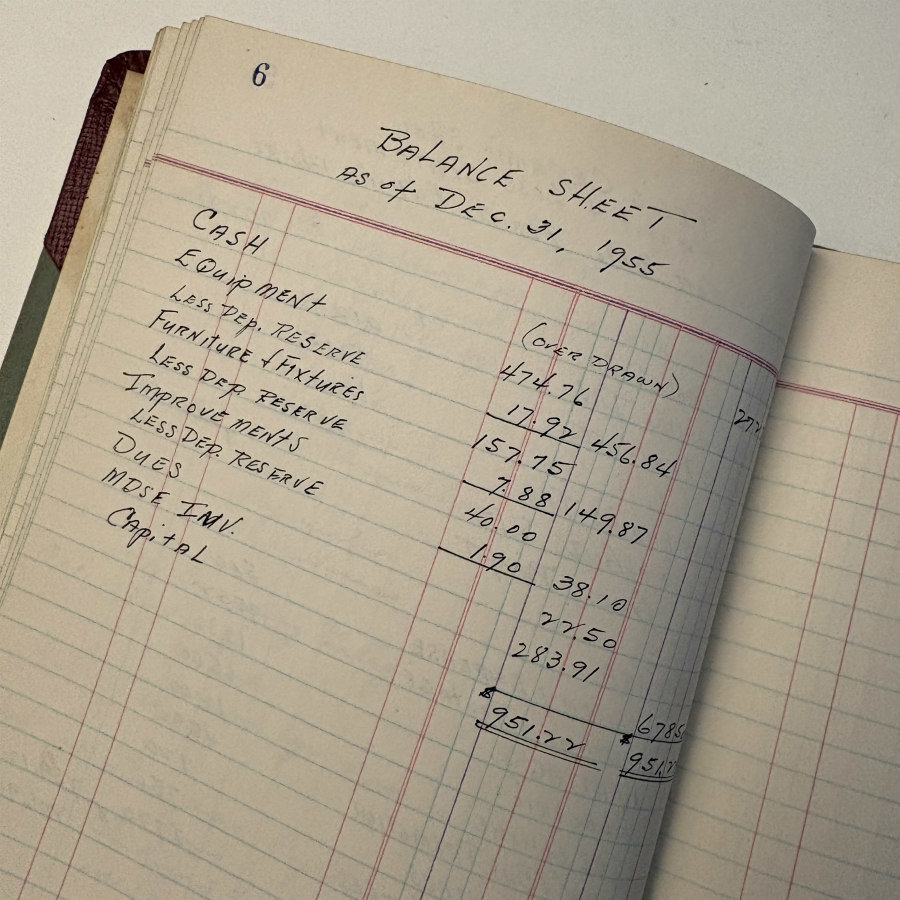 6
BALANCE SHEET
AS of DEC. 31, 1955
CASH (OVER DRAWN)
EQUIPMENT 474.76
LESS DEP. RESERVE 17.92 456.84
FURNITURE & FIXTURES 157.75
LESS DEP. RESERVE 7.88 149.87
IMPROVEMENTS 40.00
LESS DEP. RESERVE 1.90 38.10
DUES 22.50
MDSE INV. 283.91
CAPITAL
$951.22